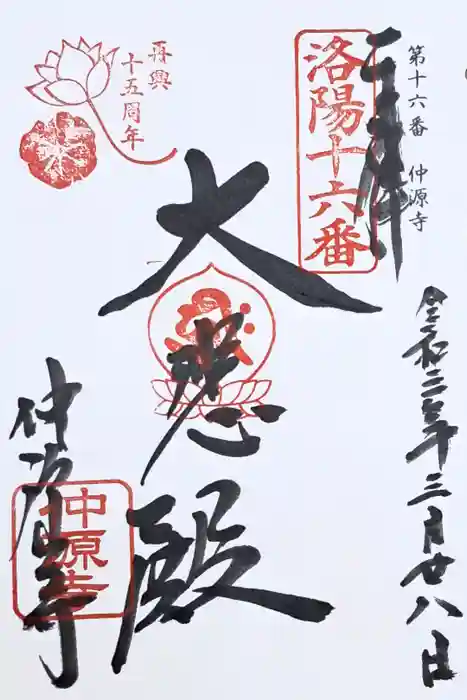 第十六番 仲源寺
奉拝
洛陽十六番
再興
十五周年
大悲殿
令和二年三月廿八日
仲源寺
仲源寺